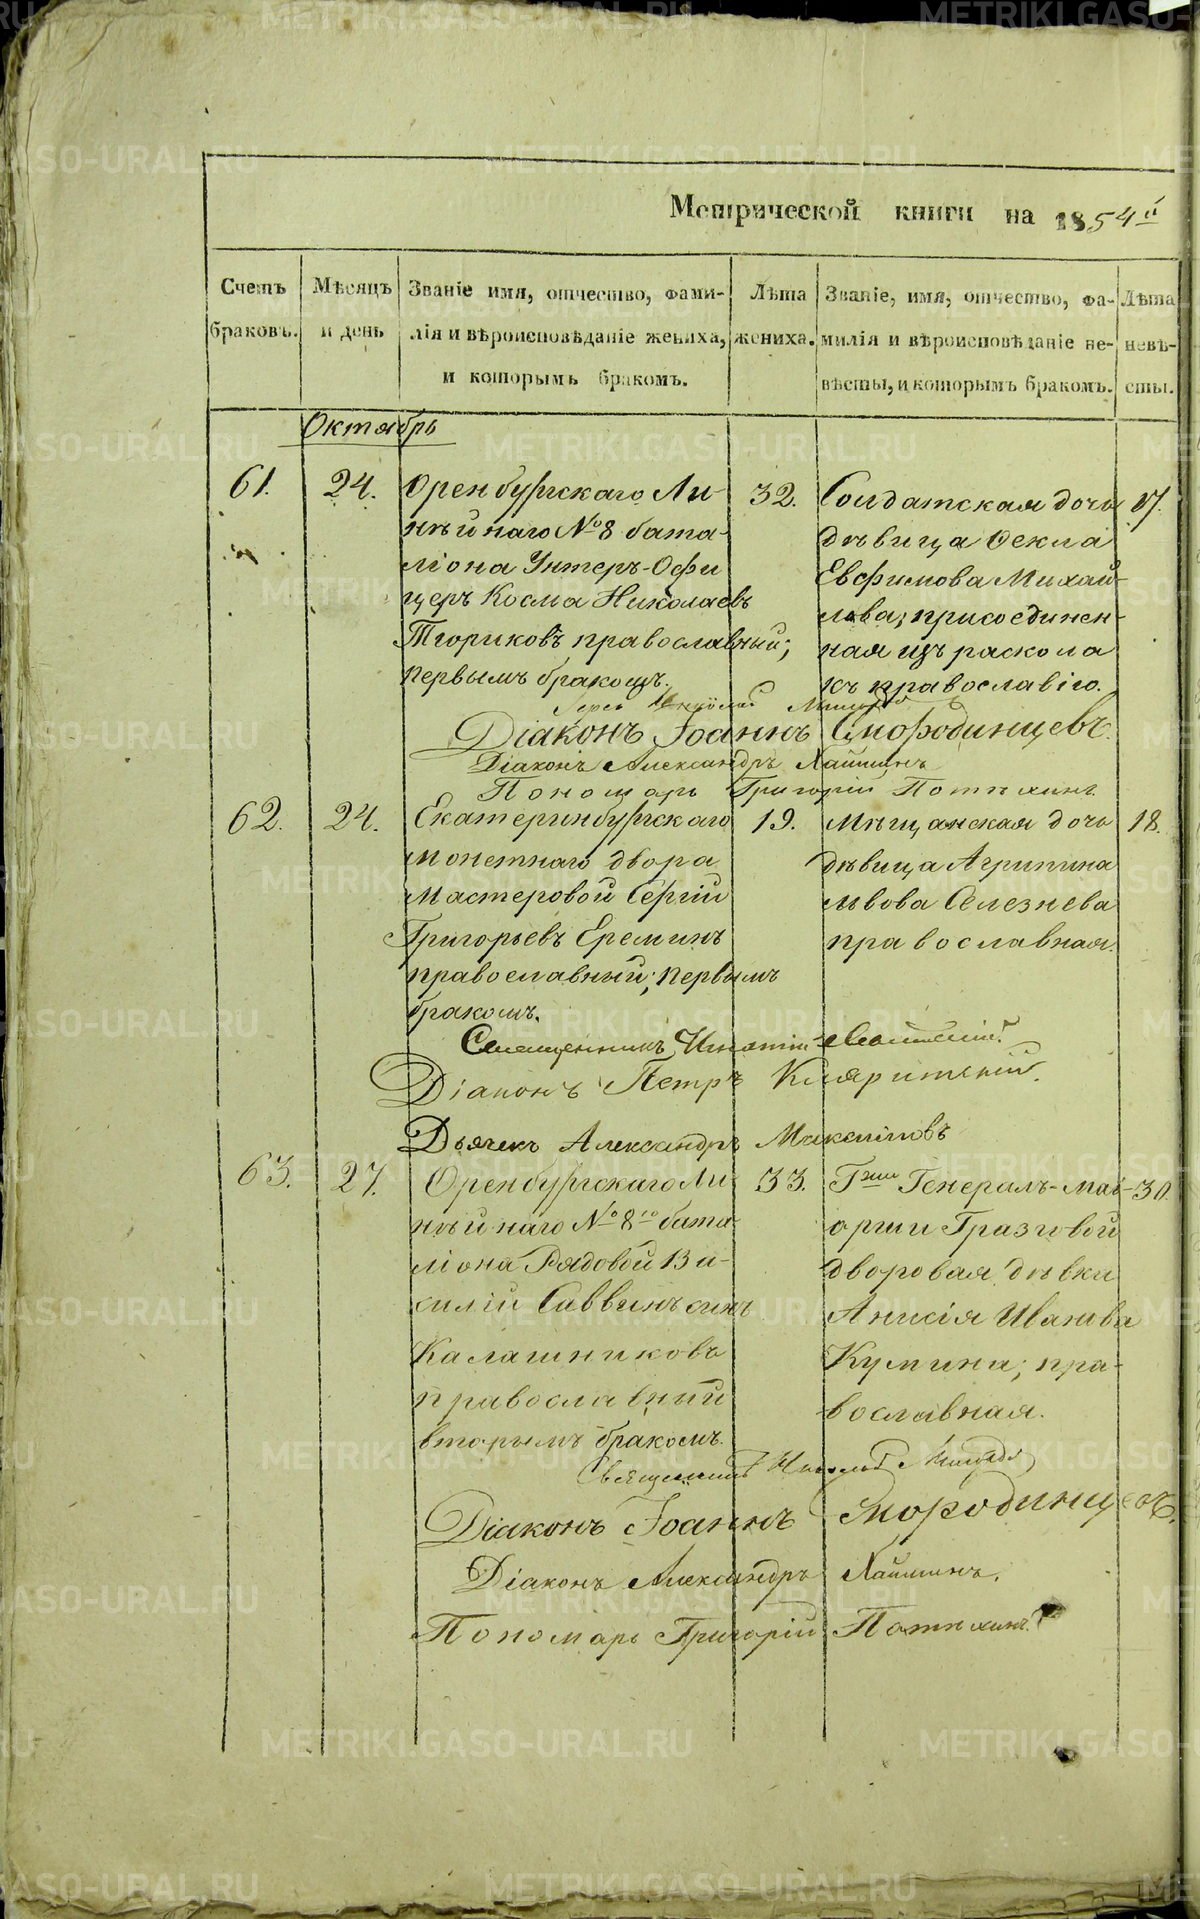 Метрической книги на 1854й
Счетъ браковъ.
Мѣсяцъ и день
Званіе имя, отчество, фами-
лія и вѣроисповѣданіе жениха,
и которымъ бракомъ.
Лѣта
жениха.
Званіе, имя, отчество, фа-
милія и вѣроисповѣданіе не-
вѣсты, и которымъ бракомъ.
Лѣта
невѣ-
сты.
Октябрь
61.
24.
Оренбургскаго Ли-
нѣйнаго № 8 бата-
ліона Унтеръ-Офи
церъ Косма Николаевъ
православный;
первымъ бракомъ.
32.
Солдатская дочь
дѣвица Ѳекла
Евфимова Михай-
лова; присоединен-
ная изъ раскола
къ православію.
17.
Діаконъ Іоаннъ Смородинцевъ.
Діаконъ Александръ Лапшинъ
Пономарь Григорій Потѣхинъ
62.
24.
Екатеринбургскаго
монетнаго двора
мастеровой Сергій
Григорьевъ Ереминъ
православный; первымъ
бракомъ.
19.
Мѣщанская дочь
дѣвица Агрипина
Львова Селезнева
православная.
18.
Священникъ Игнатій
Діаконъ Петръ
Дьячекъ Александръ Максимовъ
63.
27.
Оренбургскаго Ли
нѣйнаго № 8го бата
ліона Рядовой Ва-
силій Саввинъ сынъ
Калашниковъ
православный
вторымъ бракомъ.
33.
Гжи Генералъ-маі-
орши
дворовая дѣвка
Анисія Иванова
Кумина; пра-
вославная.
30.
Священникъ
Діаконъ Іоаннъ Смородинцевъ.
Діаконъ Александръ Лапшинъ.
Пономарь Григорій Потѣхинъ
METRIKI.GASO-URAL.RU